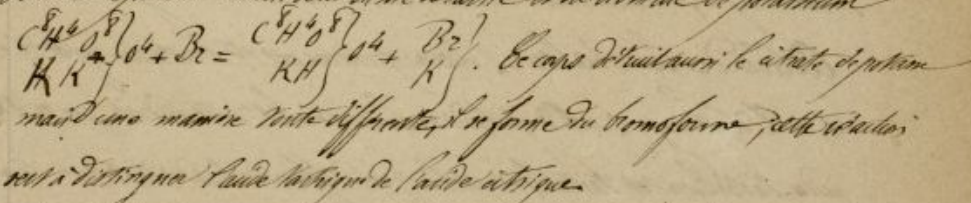 C⁸H⁴O⁸ / K K } O⁴ + Br = C⁸H⁴O⁸ / KH } O⁴ + Br / K }. Ce corps détruit aussi le citrate de potasse
mais d'une manière toute différente, il se forme du bromoforme, cette réaction
sert à distinguer l'acide tartrique de l'acide citrique.